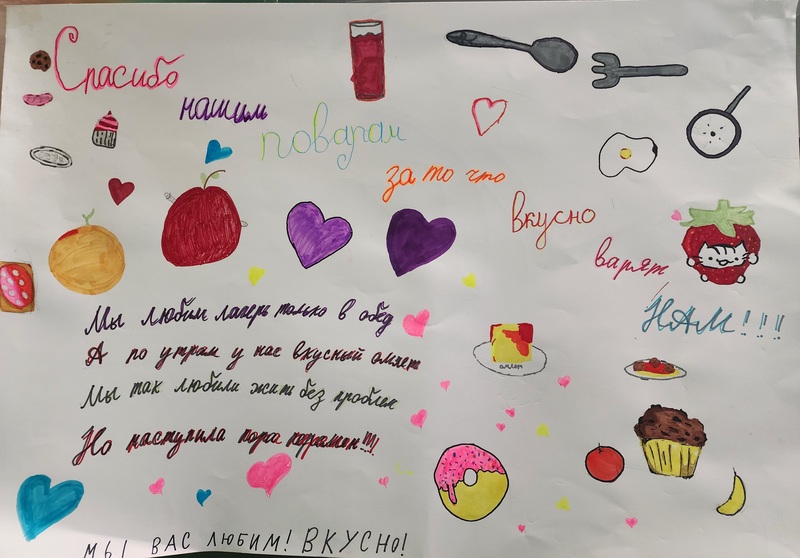 Спасибо
нашим
поварам
за то что
вкусно
варят
НАМ!!!!
Мы любим лагерь только в обед
А по утрам у нас вкусный омлет
омлет
Мы так любили жить без проблем
Но наступила пора перемен!!!!
МЫ ВАС ЛЮБИМ! ВКУСНО!